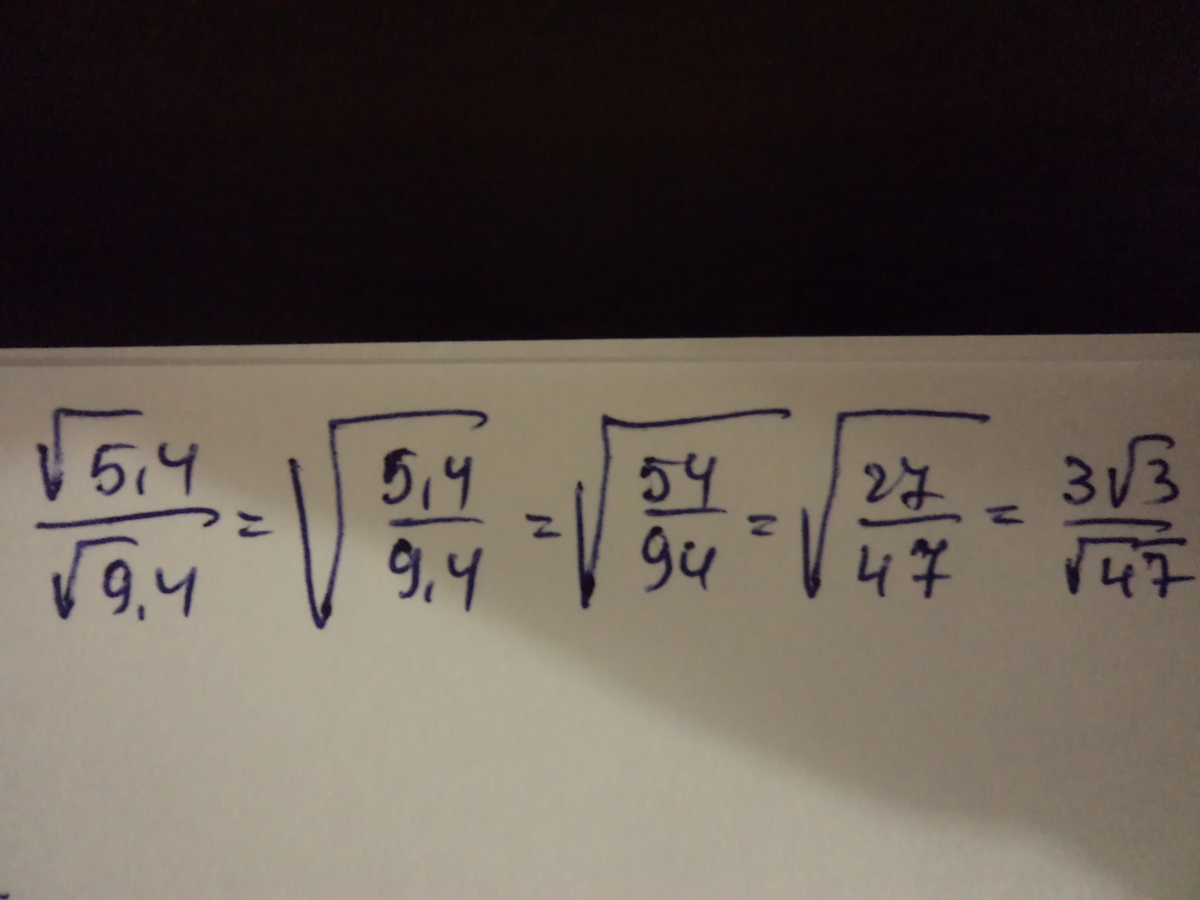 √5,4/√9,4 = √(5,4/9,4) = √(54/94) = √(27/47) = 3√3/√47